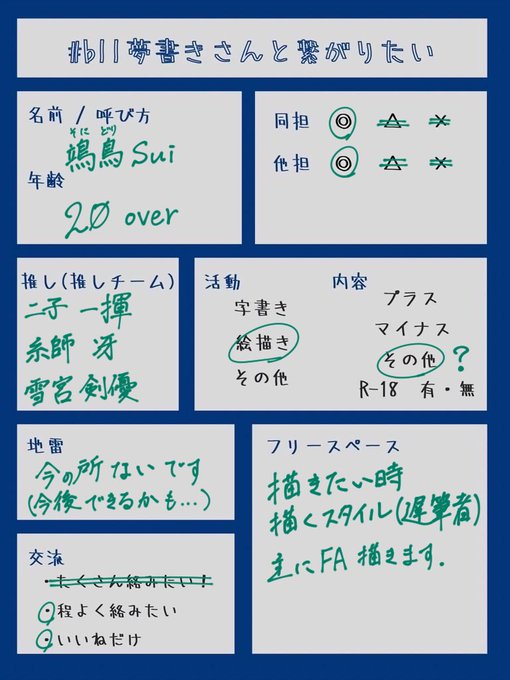 #bll夢書きさんと繋がりたい
名前 / 呼び方
そに どり
鴗鳥 Sui
年齢
20 over
同担 ◎ △ ×
他担 ◎ △ ×
推し(推しチーム)
二子 一揮
糸師 冴
雪宮 剣優
活動
字書き
絵描き
その他
内容
プラス
マイナス
その他 ?
R-18 有・無
地雷
今の所ないです
(今後できるかも…)
交流
・たくさん絡みたい!
・程よく絡みたい
・いいねだけ
フリースペース
描きたい時
描くスタイル(遅筆者)
主にFA描きます.